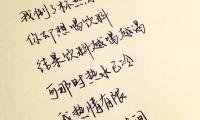 我倒了杯热水
你却想喝饮料
结果饮料越喝越渴
可那时热水已冷
我热情有限